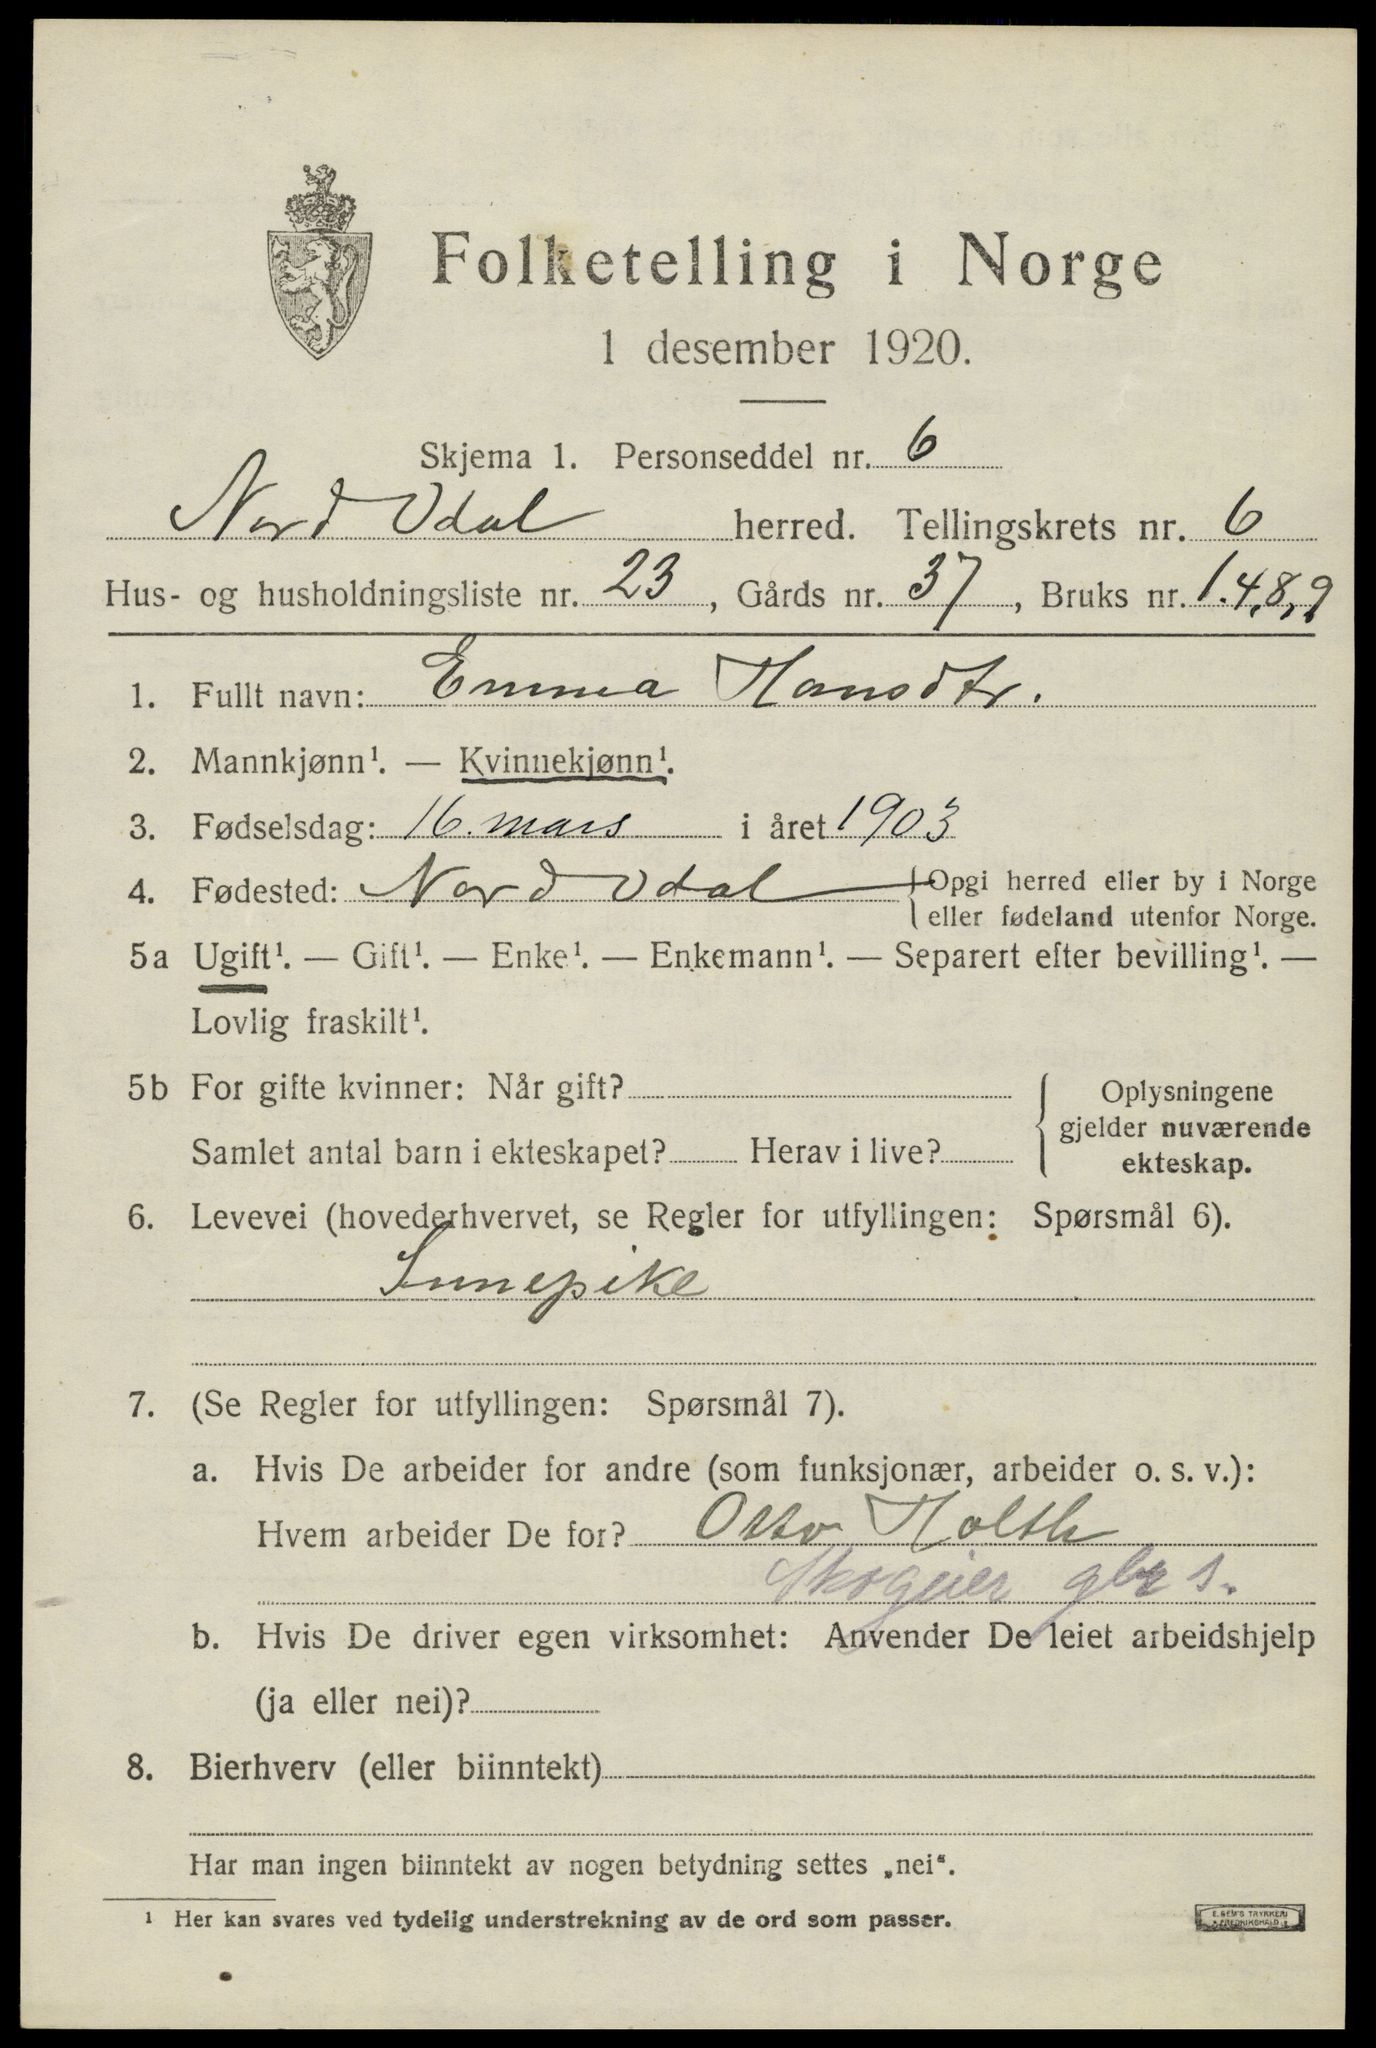 Folketelling i Norge
1 desember 1920.
Skjema 1. Personseddel nr. 6
Nord Odal herred. Tellingskrets nr. 6
Hus- og husholdningsliste nr. 23, Gårds nr. 37, Bruks nr. 1.4,8,9
1. Fullt navn: Emma Hansdtr.
2. Mannkjønn¹. — Kvinnekjønn¹.
3. Fødselsdag: 16. mars i året 1903
4. Fødested: Nord Odal {Opgi herred eller by i Norge
eller fødeland utenfor Norge.
5a Ugift¹. — Gift¹. — Enke¹. — Enkemann¹. — Separert efter bevilling¹. —
Lovlig fraskilt¹.
5b For gifte kvinner: Når gift?
Samlet antal barn i ekteskapet? Herav i live?
Oplysningene
gjelder nuværende
ekteskap.
6. Levevei (hovederhvervet, se Regler for utfyllingen: Spørsmål 6).
Innepike
7. (Se Regler for utfyllingen: Spørsmål 7).
a. Hvis De arbeider for andre (som funksjonær, arbeider o. s. v.):
Hvem arbeider De for? Otto Holth
Skogeier gbr s.
b. Hvis De driver egen virksomhet: Anvender De leiet arbeidshjelp
(ja eller nei)?
8. Bierhverv (eller biinntekt)
Har man ingen biinntekt av nogen betydning settes „nei“.
¹ Her kan svares ved tydelig understrekning av de ord som passer.
E. SEM'S TRYKKERI
FREDRIKSHALD